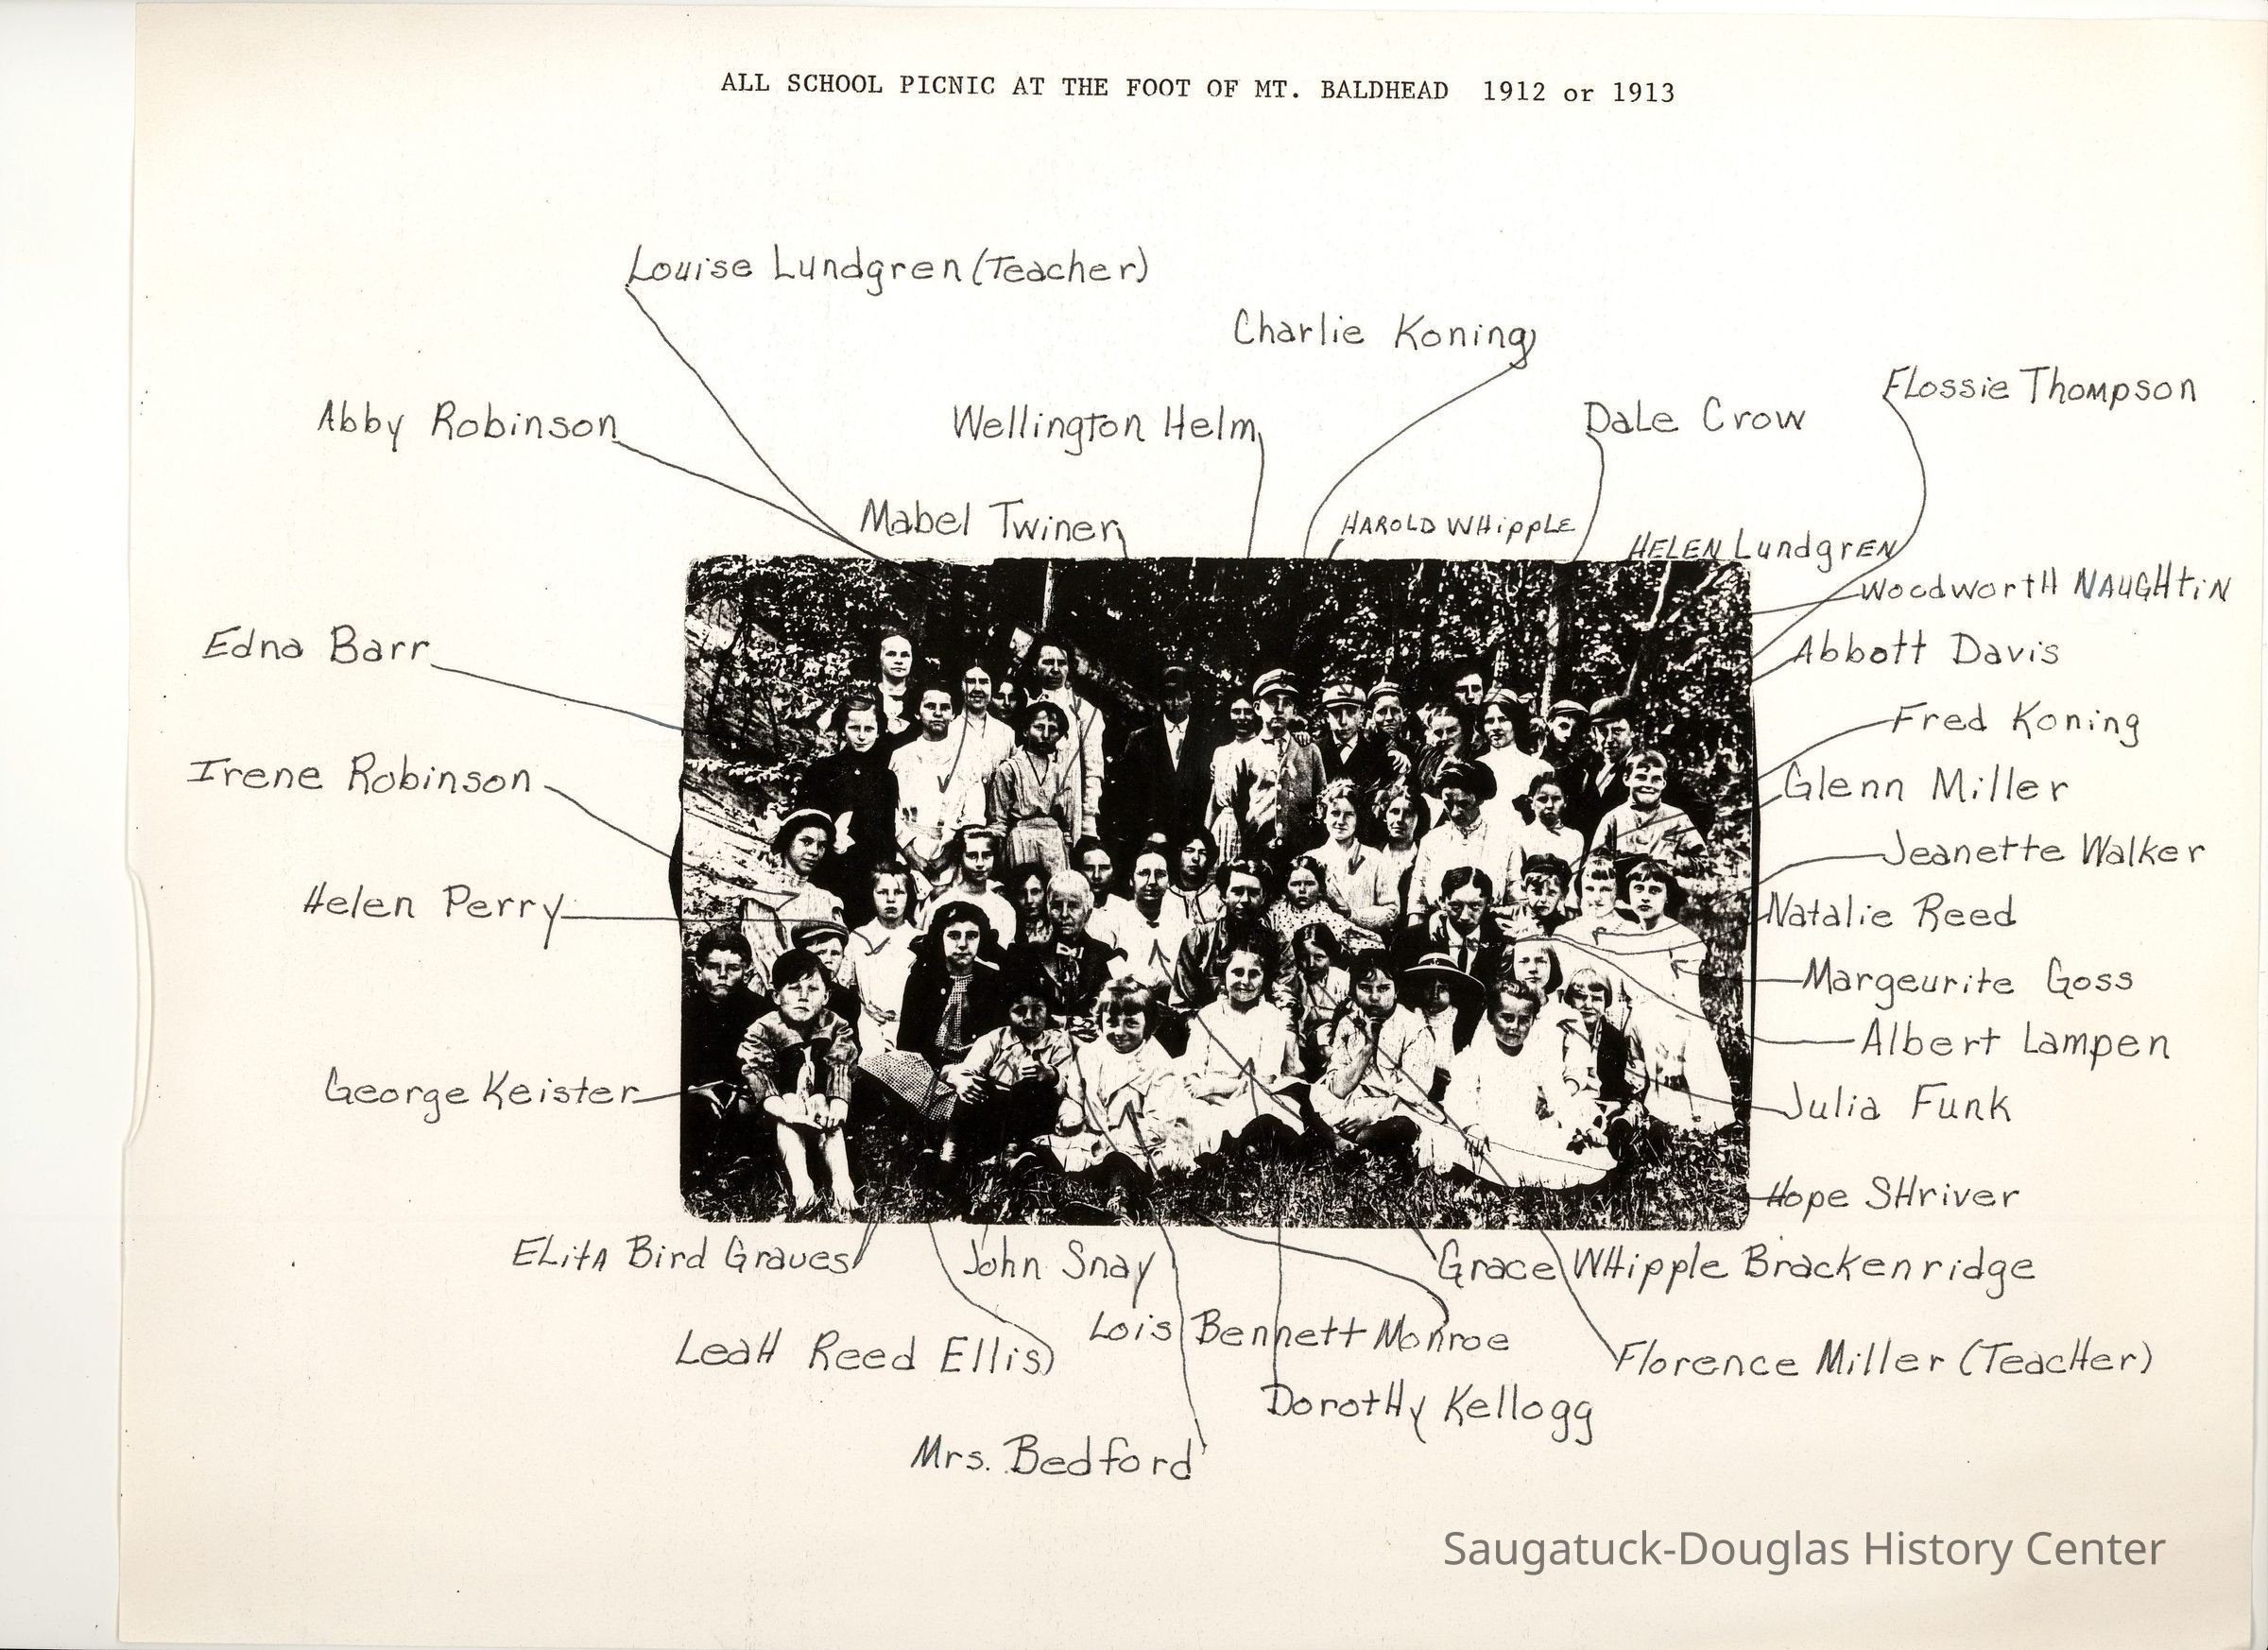 ALL SCHOOL PICNIC AT THE FOOT OF MT. BALDHEAD 1912 or 1913
Louise Lundgren (Teacher)
Charlie Koning
Flossie Thompson
Abby Robinson
Wellington Helm
Dale Crow
Mabel Twiner
HAROLD WHippLE
HELEN LundgrEN
WoodwortH NAUGHtiN
Edna Barr
Abbott Davis
Fred Koning
Irene Robinson
Glenn Miller
Jeanette Walker
Helen Perry
Natalie Reed
Margeurite Goss
Albert Lampen
George Keister
Julia Funk
Hope SHriver
ELitA Bird Graves
John Snay
Grace WHipple Brackenridge
Lois Bennett Monroe
LeaH Reed Ellis
Florence Miller (TeacHer)
DorotHy Kellogg
Mrs. Bedford
Saugatuck-Douglas History Center